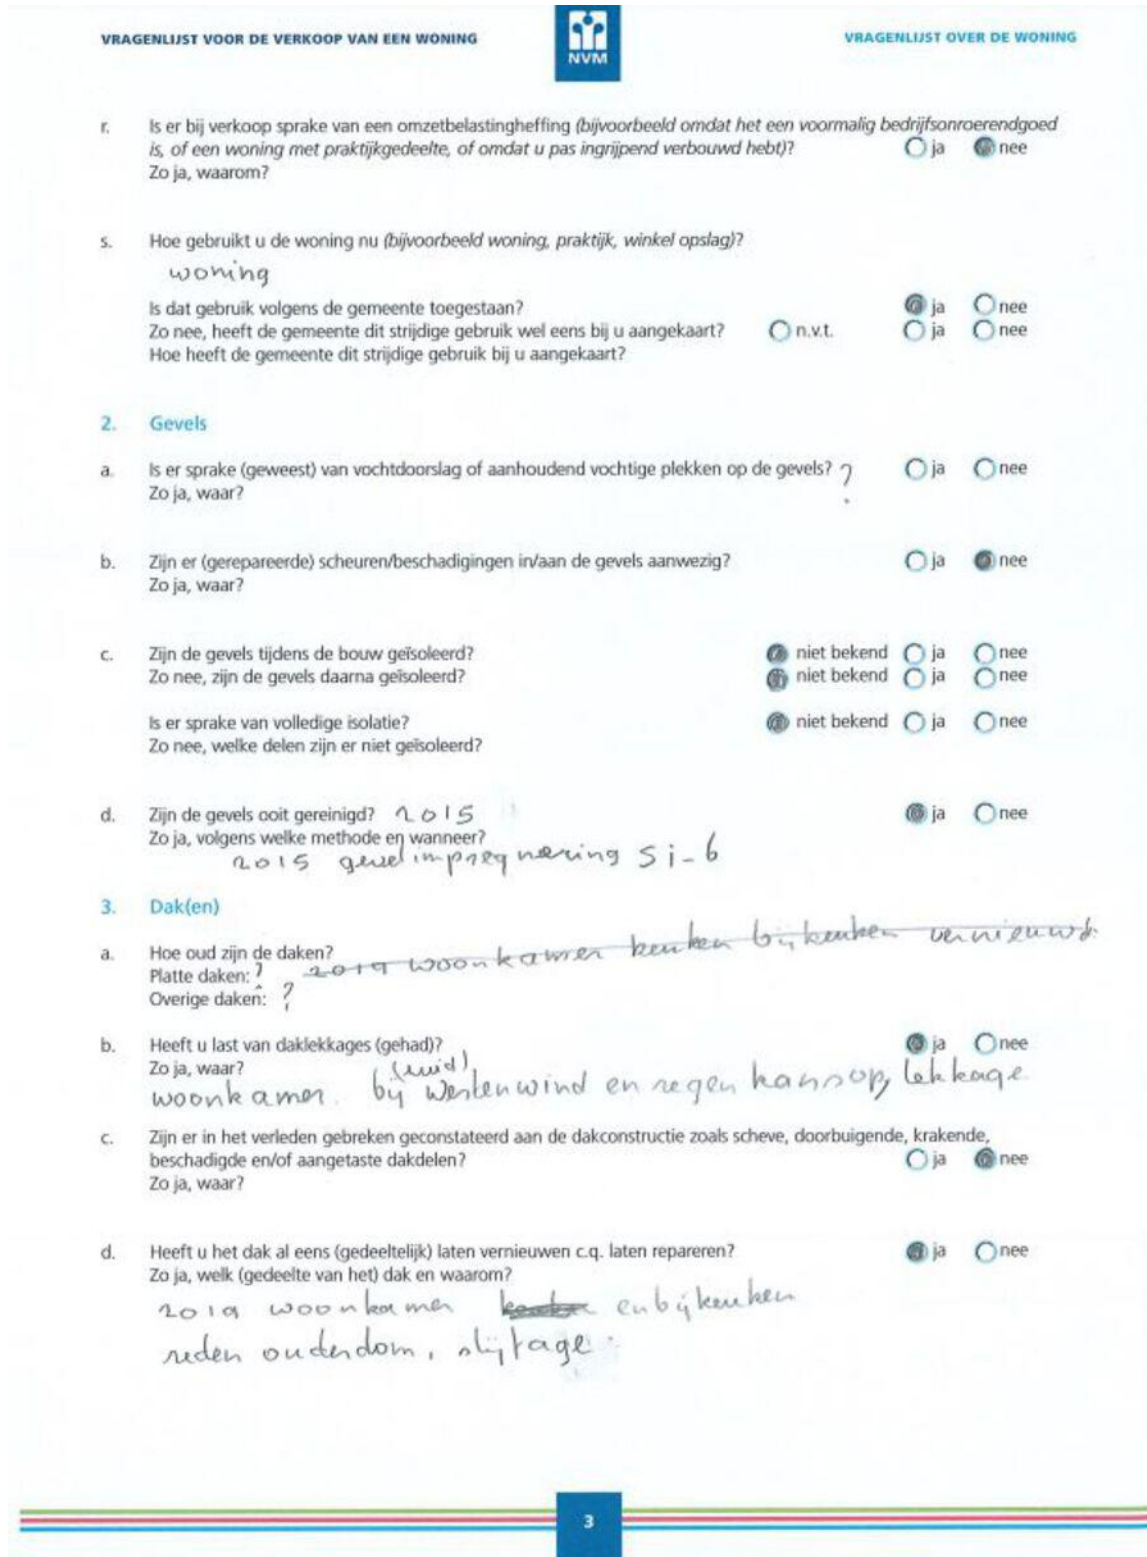 VRAGENLIJST VOOR DE VERKOOP VAN EEN WONING
NVM
VRAGENLIJST OVER DE WONING
r. Is er bij verkoop sprake van een omzetbelastingheffing (bijvoorbeeld omdat het een voormalig bedrijfsonroerendgoed
is, of een woning met praktijkgedeelte, of omdat u pas ingrijpend verbouwd hebt)? ja nee
Zo ja, waarom?
s. Hoe gebruikt u de woning nu (bijvoorbeeld woning, praktijk, winkel opslag)?
woning
Is dat gebruik volgens de gemeente toegestaan? ja nee
Zo nee, heeft de gemeente dit strijdige gebruik wel eens bij u aangekaart? n.v.t. ja nee
Hoe heeft de gemeente dit strijdige gebruik bij u aangekaart?
2. Gevels
a. Is er sprake (geweest) van vochtdoorslag of aanhoudend vochtige plekken op de gevels? ? ja nee
Zo ja, waar?
b. Zijn er (gerepareerde) scheuren/beschadigingen in/aan de gevels aanwezig? ja nee
Zo ja, waar?
c. Zijn de gevels tijdens de bouw geïsoleerd? niet bekend ja nee
Zo nee, zijn de gevels daarna geïsoleerd? niet bekend ja nee
Is er sprake van volledige isolatie? niet bekend ja nee
Zo nee, welke delen zijn er niet geïsoleerd?
d. Zijn de gevels ooit gereinigd? 2015 ja nee
Zo ja, volgens welke methode en wanneer?
2015 gevelimpregnering Si-6
3. Dak(en)
a. Hoe oud zijn de daken?
Platte daken: ? 2019 woonkamer keuken bijkeuken vernieuwd.
Overige daken: ?
b. Heeft u last van daklekkages (gehad)? ja nee
Zo ja, waar? (zuid)
woonkamer. bij Westenwind en regen kans op lekkage
c. Zijn er in het verleden gebreken geconstateerd aan de dakconstructie zoals scheve, doorbuigende, krakende,
beschadigde en/of aangetaste dakdelen? ja nee
Zo ja, waar?
d. Heeft u het dak al eens (gedeeltelijk) laten vernieuwen c.q. laten repareren? ja nee
Zo ja, welk (gedeelte van het) dak en waarom?
2019 woonkamer en bijkeuken
reden ouderdom, slijtage.
3